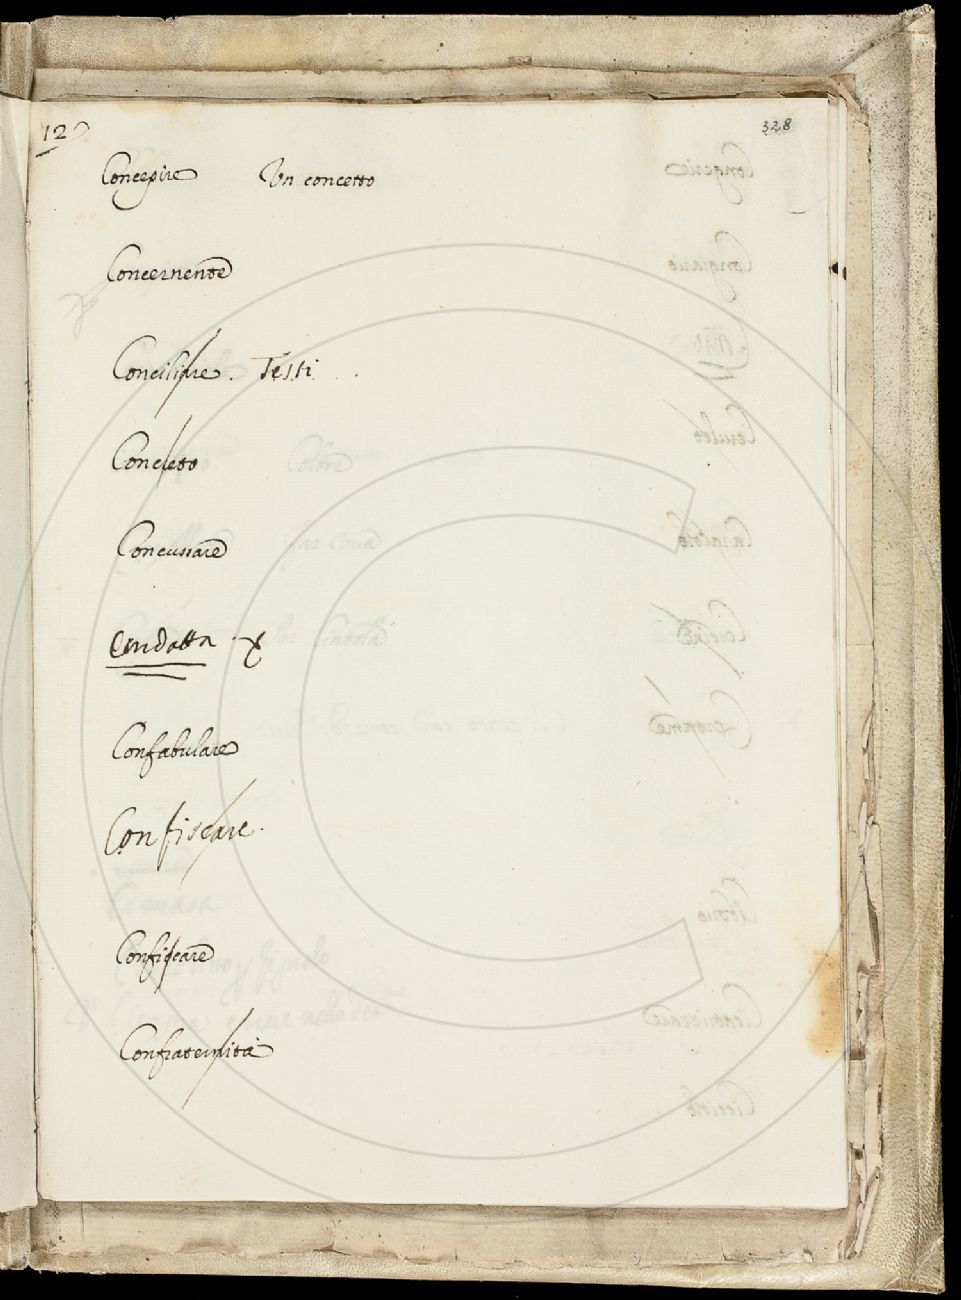 12
328
Concepire Un concetto
Concernente
Conciliare. Testi.
Concleto
Concussare
Condotta X
Confabulare
Confiscare.
Conficcare
Confraternità